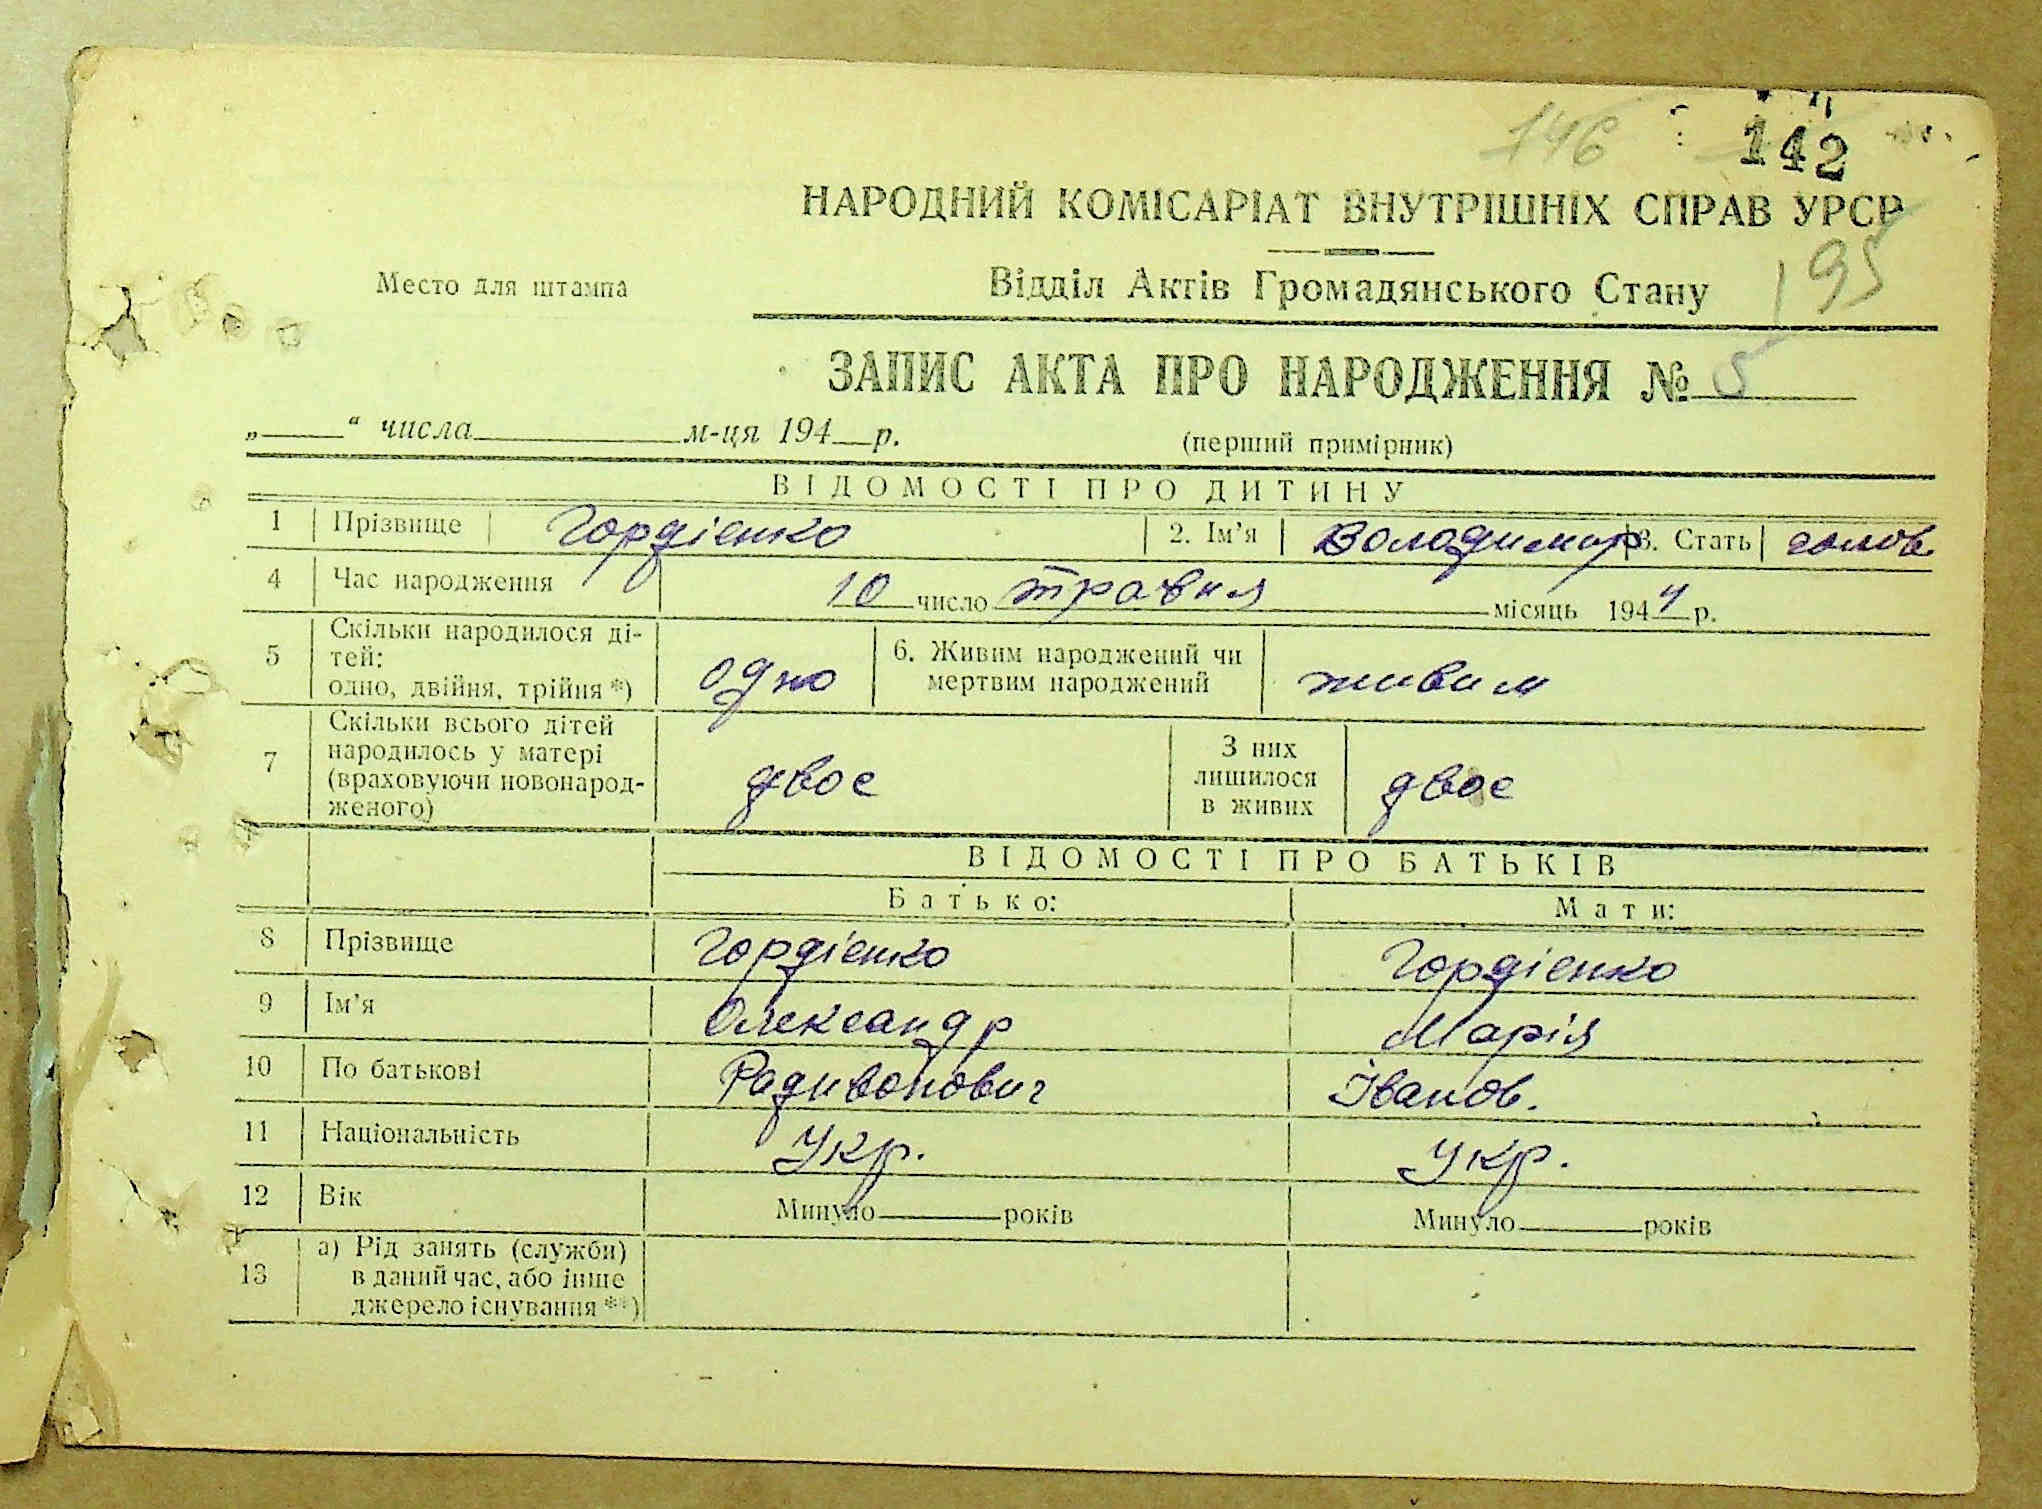 146
142
НАРОДНИЙ КОМІСАРІАТ ВНУТРІШНІХ СПРАВ УРСР
195
Место для штампа
Відділ Актів Громадянського Стану
ЗАПИС АКТА ПРО НАРОДЖЕННЯ № 5
„____“ числа__________м-ця 194__р.
(перший примірник)
ВІДОМОСТІ ПРО ДИТИНУ
1 Прізвище Гордієнко 2. Ім'я Володимир 3. Стать чолов.
4 Час народження 10 число травня місяць 1944 р.
5 Скільки народилося ді-
тей:
одно, двійня, трійня *) одно
6. Живим народжений чи
мертвим народжений живим
7 Скільки всього дітей
народилось у матері
(враховуючи новонарод-
женого) двоє
З них
лишилося
в живих двоє
ВІДОМОСТІ ПРО БАТЬКІВ
Батько: Мати:
8 Прізвище Гордієнко Гордієнко
9 Ім'я Олександр Марія
10 По батькові Радивонович Іванов.
11 Національність Укр. Укр.
12 Вік Минуло______років Минуло______років
13 а) Рід занять (служби)
в даний час, або інше
джерело існування **)